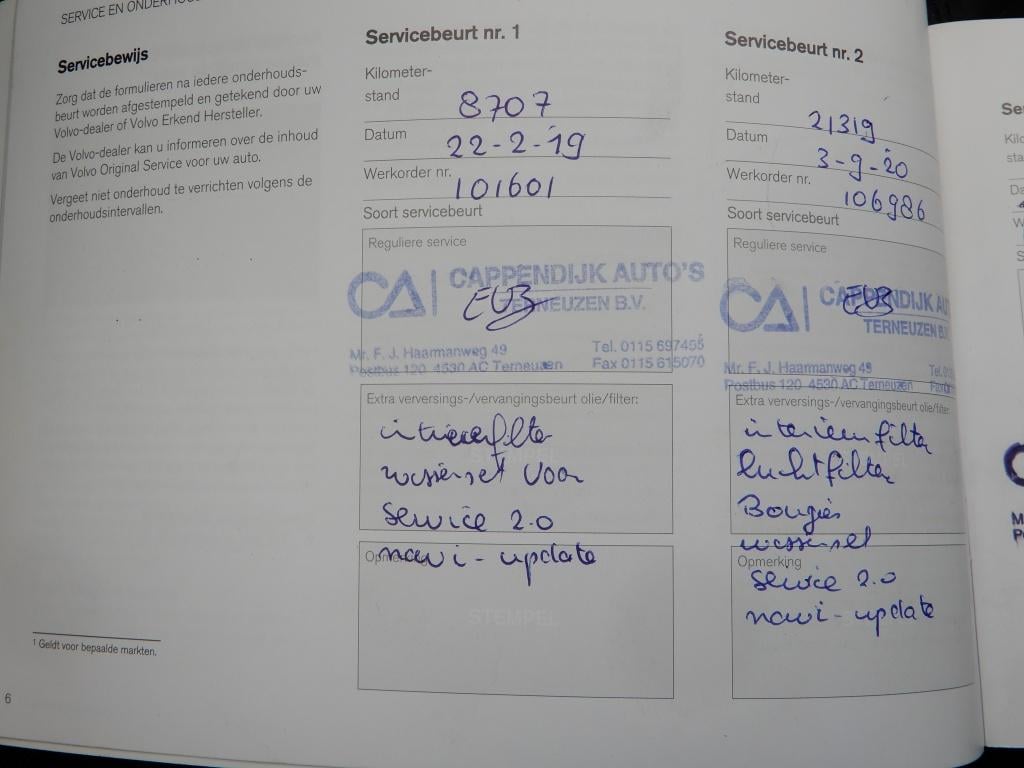 SERVICE EN
Servicebewijs
Zorg dat de formulieren na iedere onderhouds-
beurt worden afgestempeld en getekend door uw
Volvo-dealer of Volvo Erkend Hersteller.
De Volvo-dealer kan u informeren over de inhoud
van Volvo Original Service voor uw auto.
Vergeet niet onderhoud te verrichten volgens de
onderhoudsintervallen.
1 Geldt voor bepaalde markten.
6
Servicebeurt nr. 1
Kilometer-
stand
8707
Datum
22-2-19
Werkorder nr.
101601
Soort servicebeurt
Reguliere service
CA CAPPENDIJK AUTO'S
TERNEUZEN B.V.
Mr. F. J. Haarmanweg 49 Tel. 0115 697455
Postbus 120 4530 AC Terneuzen Fax 0115 615070
Extra verversings-/vervangingsbeurt olie/filter:
wisserset voor
service 2.0
Opmerking
navi-update
STEMPEL
Servicebeurt nr. 2
Kilometer-
stand
21319
Datum
3-9-20
Werkorder nr.
106986
Soort servicebeurt
Reguliere service
CA CAPPENDIJK
TERNEUZEN
Mr. F. J. Haarmanweg 49
Postbus 120 4530 AC Terneuzen
Extra verversings-/vervangingsbeurt olie/filter:
interieurfilter
luchtfilter
Bougies
wisserset
Opmerking
service 2.0
navi-update